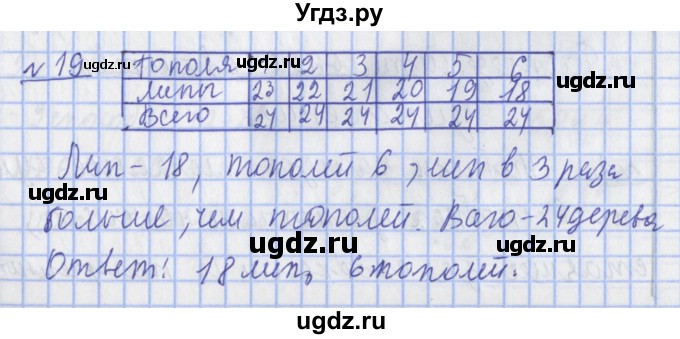 Угдз.ру
ugdz.ru ugdz.ru ugdz.ru
№ 19 Тополя 1 2 3 4 5 6
Липы 23 22 21 20 19 18
Всего 24 24 24 24 24 24
ugdz.ru ugdz.ru
Лип - 18, тополей 6, лип в 3 раза
ugdz.ru ugdz.ru
больше, чем тополей. Всего - 24 дерева
ugdz.ru
Ответ: 18 лип, 6 тополей.
ugdz.ru ugdz.ru
Угдз.ру